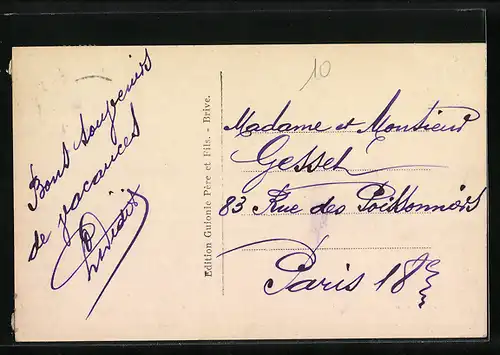 Bons souvenirs
de vacances
Edition Guionie Père et Fils. - Brive.
10
Madame et Monsieur
Gesset
83 Rue des Poissonniers
Paris 18e